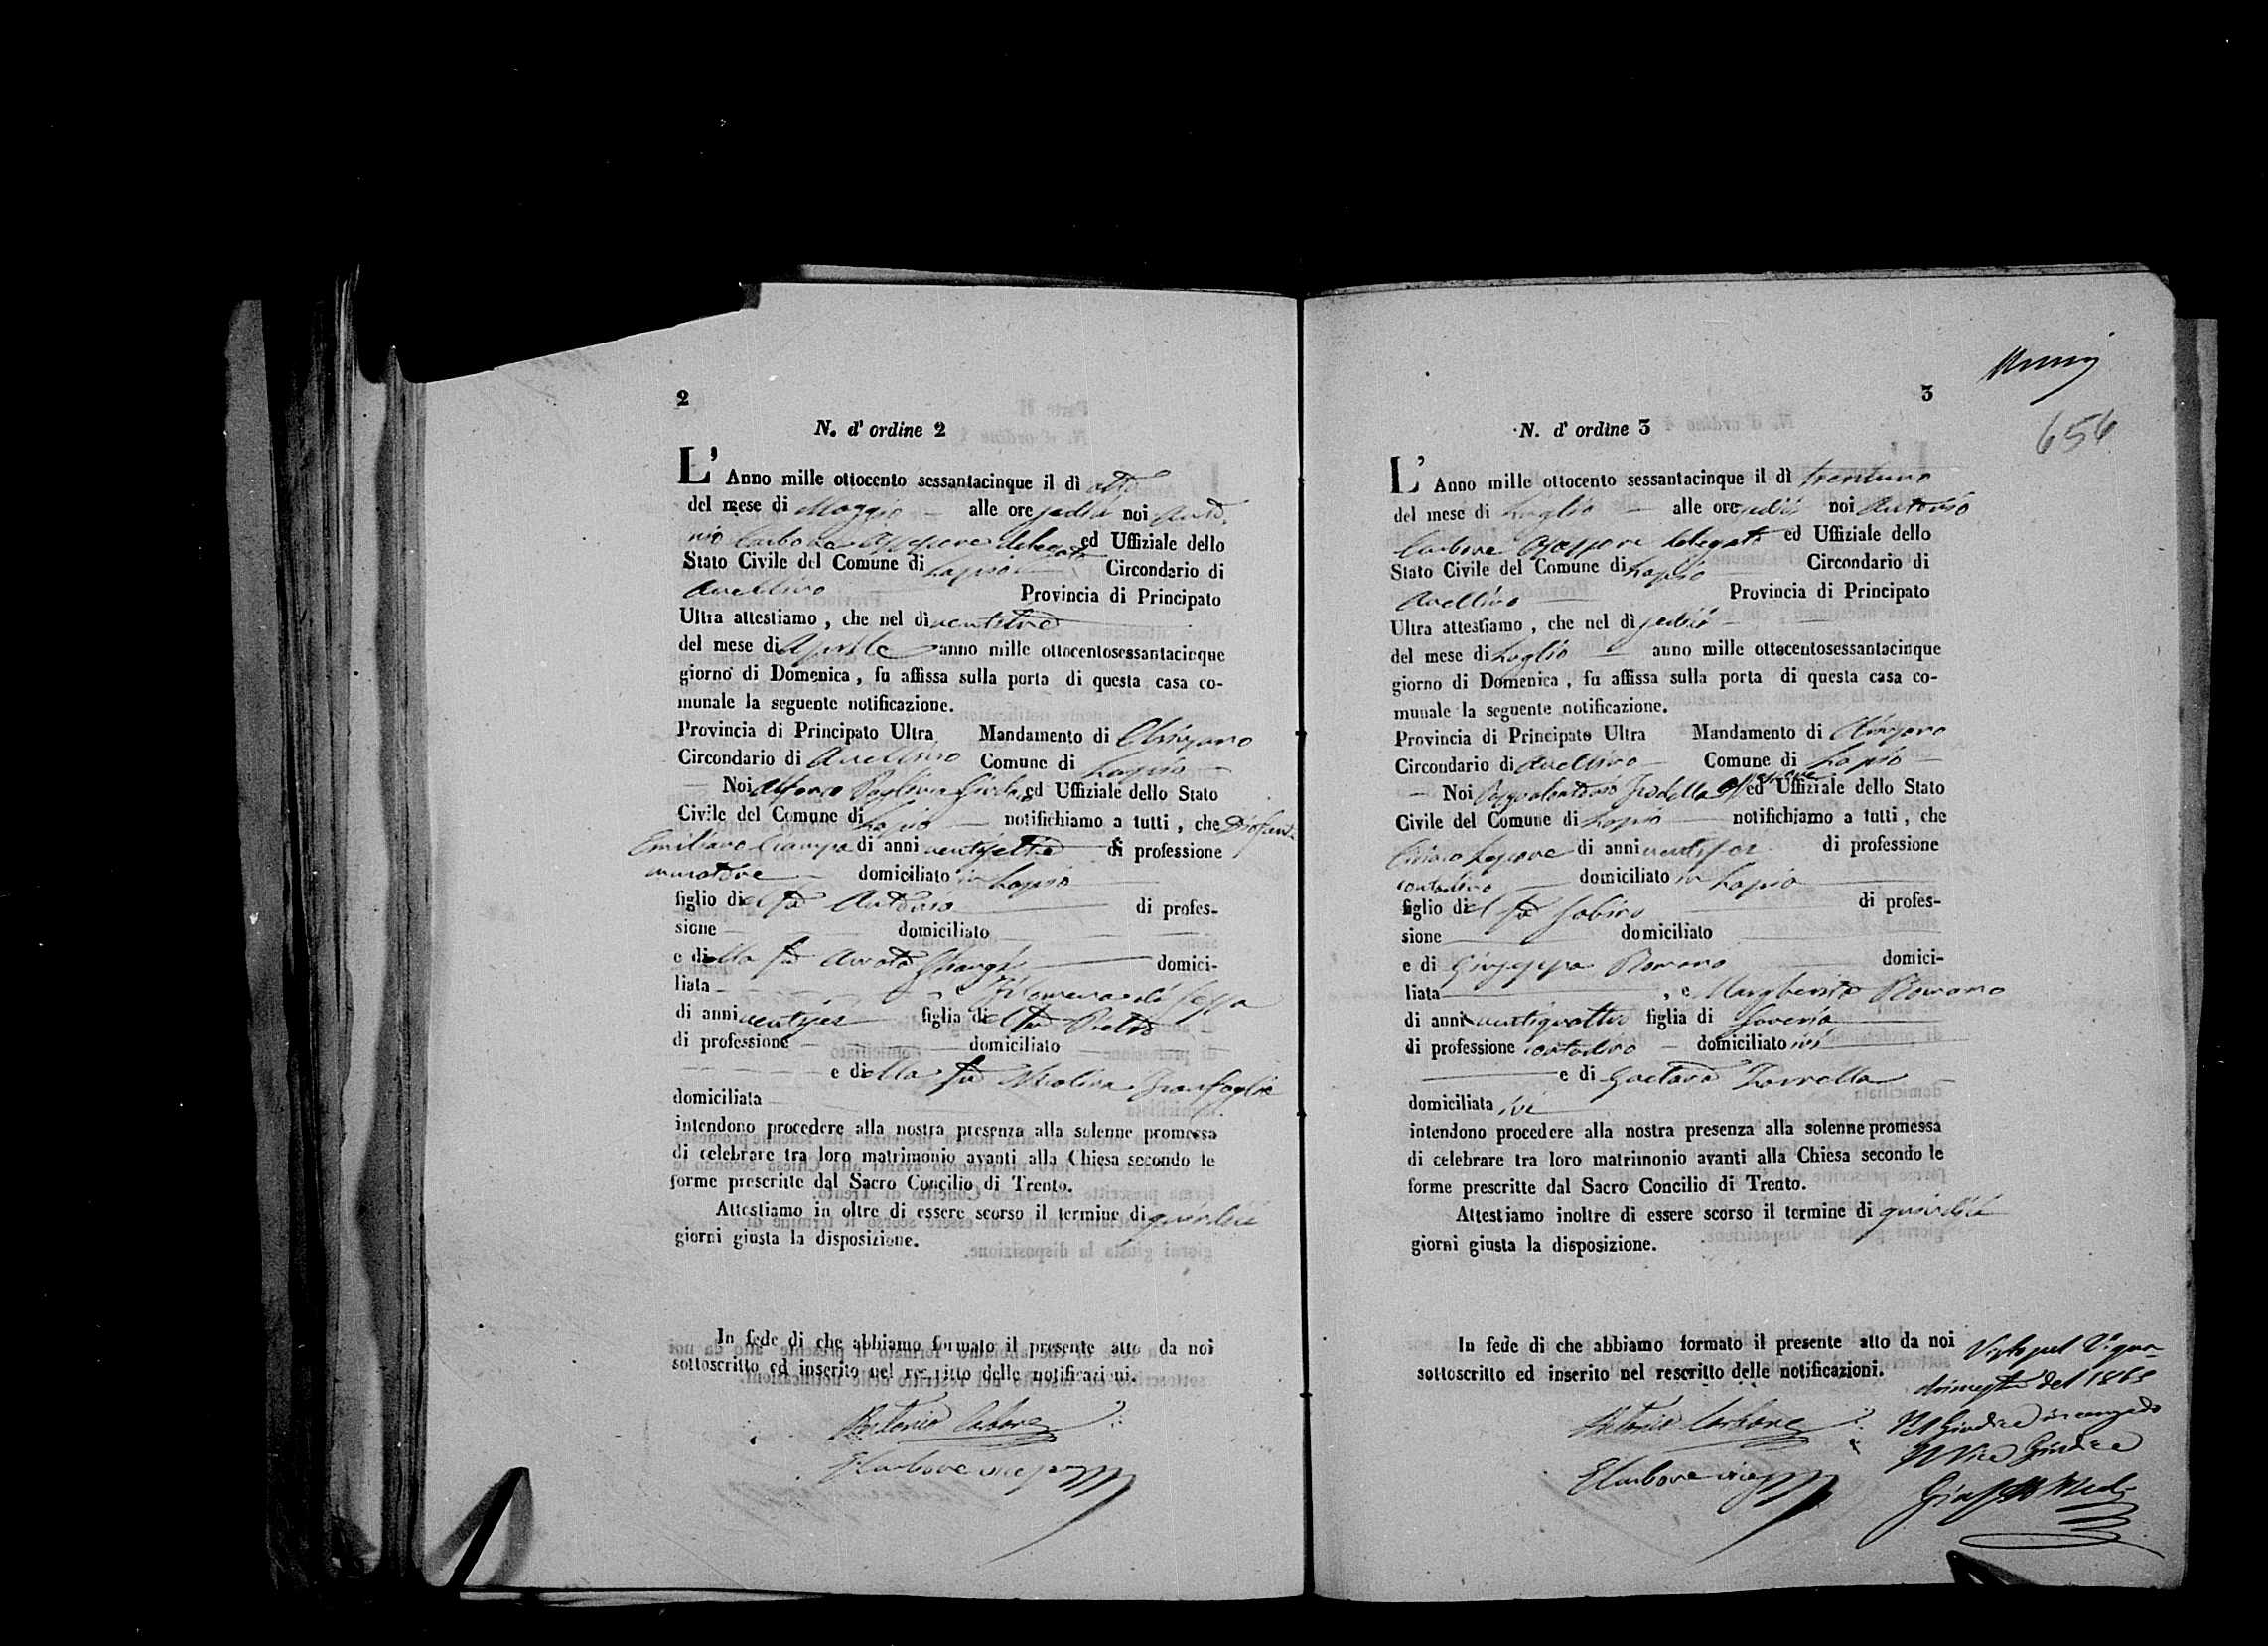 2
N. d' ordine 2
L' Anno mille ottocento sessantacinque il dì otto
del mese di Maggio alle ore sedici noi Anto-
nio Carbone Assessore delegato ed Uffiziale dello
Stato Civile del Comune di Lapio Circondario di
Avellino Provincia di Principato
Ultra attestiamo, che nel dì ventitre
del mese di Aprile anno mille ottocentosessantacinque
giorno di Domenica, fu affissa sulla porta di questa casa co-
munale la seguente notificazione.
Provincia di Principato Ultra Mandamento di Chiusano
Circondario di Avellino Comune di Lapio
Noi Alfonso ed Uffiziale dello Stato
Civile del Comune di Lapio notifichiamo a tutti, che
Emiliano Ciampa di anni ventisette di professione
muratore domiciliato in Lapio
figlio del fu Antonio di profes-
sione domiciliato
e della fu domici-
liata, e Filomena di
di anni ventisei figlia del fu Pietro
di professione domiciliato
e della fu Nicolina
domiciliata
intendono procedere alla nostra presenza alla solenne promessa
di celebrare tra loro matrimonio avanti alla Chiesa secondo le
forme prescritte dal Sacro Concilio di Trento.
Attestiamo in oltre di essere scorso il termine di quindici
giorni giusta la disposizione.
In fede di che abbiamo formato il presente atto da noi
sottoscritto ed inserito nel rescritto delle notificazioni.
Antonio Carbone
Carbone
3
656
N. d' ordine 3
L' Anno mille ottocento sessantacinque il dì trentuno
del mese di Luglio alle ore sedici noi Antonio
Carbone Assessore delegato ed Uffiziale dello
Stato Civile del Comune di Lapio Circondario di
Avellino Provincia di Principato
Ultra attestiamo, che nel dì sedici
del mese di Luglio anno mille ottocentosessantacinque
giorno di Domenica, fu affissa sulla porta di questa casa co-
munale la seguente notificazione.
Provincia di Principato Ultra Mandamento di Chiusano
Circondario di Avellino Comune di Lapio
Noi Assessore ed Uffiziale dello Stato
Civile del Comune di Lapio notifichiamo a tutti, che
Ciriaco Lepore di anni ventisei di professione
contadino domiciliato in Lapio
figlio del fu Sabino di profes-
sione domiciliato
e di Giuseppa Romano domici-
liata, e Margherita Romano
di anni ventiquattro figlia di Saverio
di professione contadino domiciliato ivi
e di Gaetana
domiciliata ivi
intendono procedere alla nostra presenza alla solenne promessa
di celebrare tra loro matrimonio avanti alla Chiesa secondo le
forme prescritte dal Sacro Concilio di Trento.
Attestiamo inoltre di essere scorso il termine di quindici
giorni giusta la disposizione.
In fede di che abbiamo formato il presente atto da noi
sottoscritto ed inserito nel rescritto delle notificazioni.
Antonio Carbone
Carbone
Visto pel 2° qua-
drimestre del 1865
Pel Giudice
Il Vice Giudice